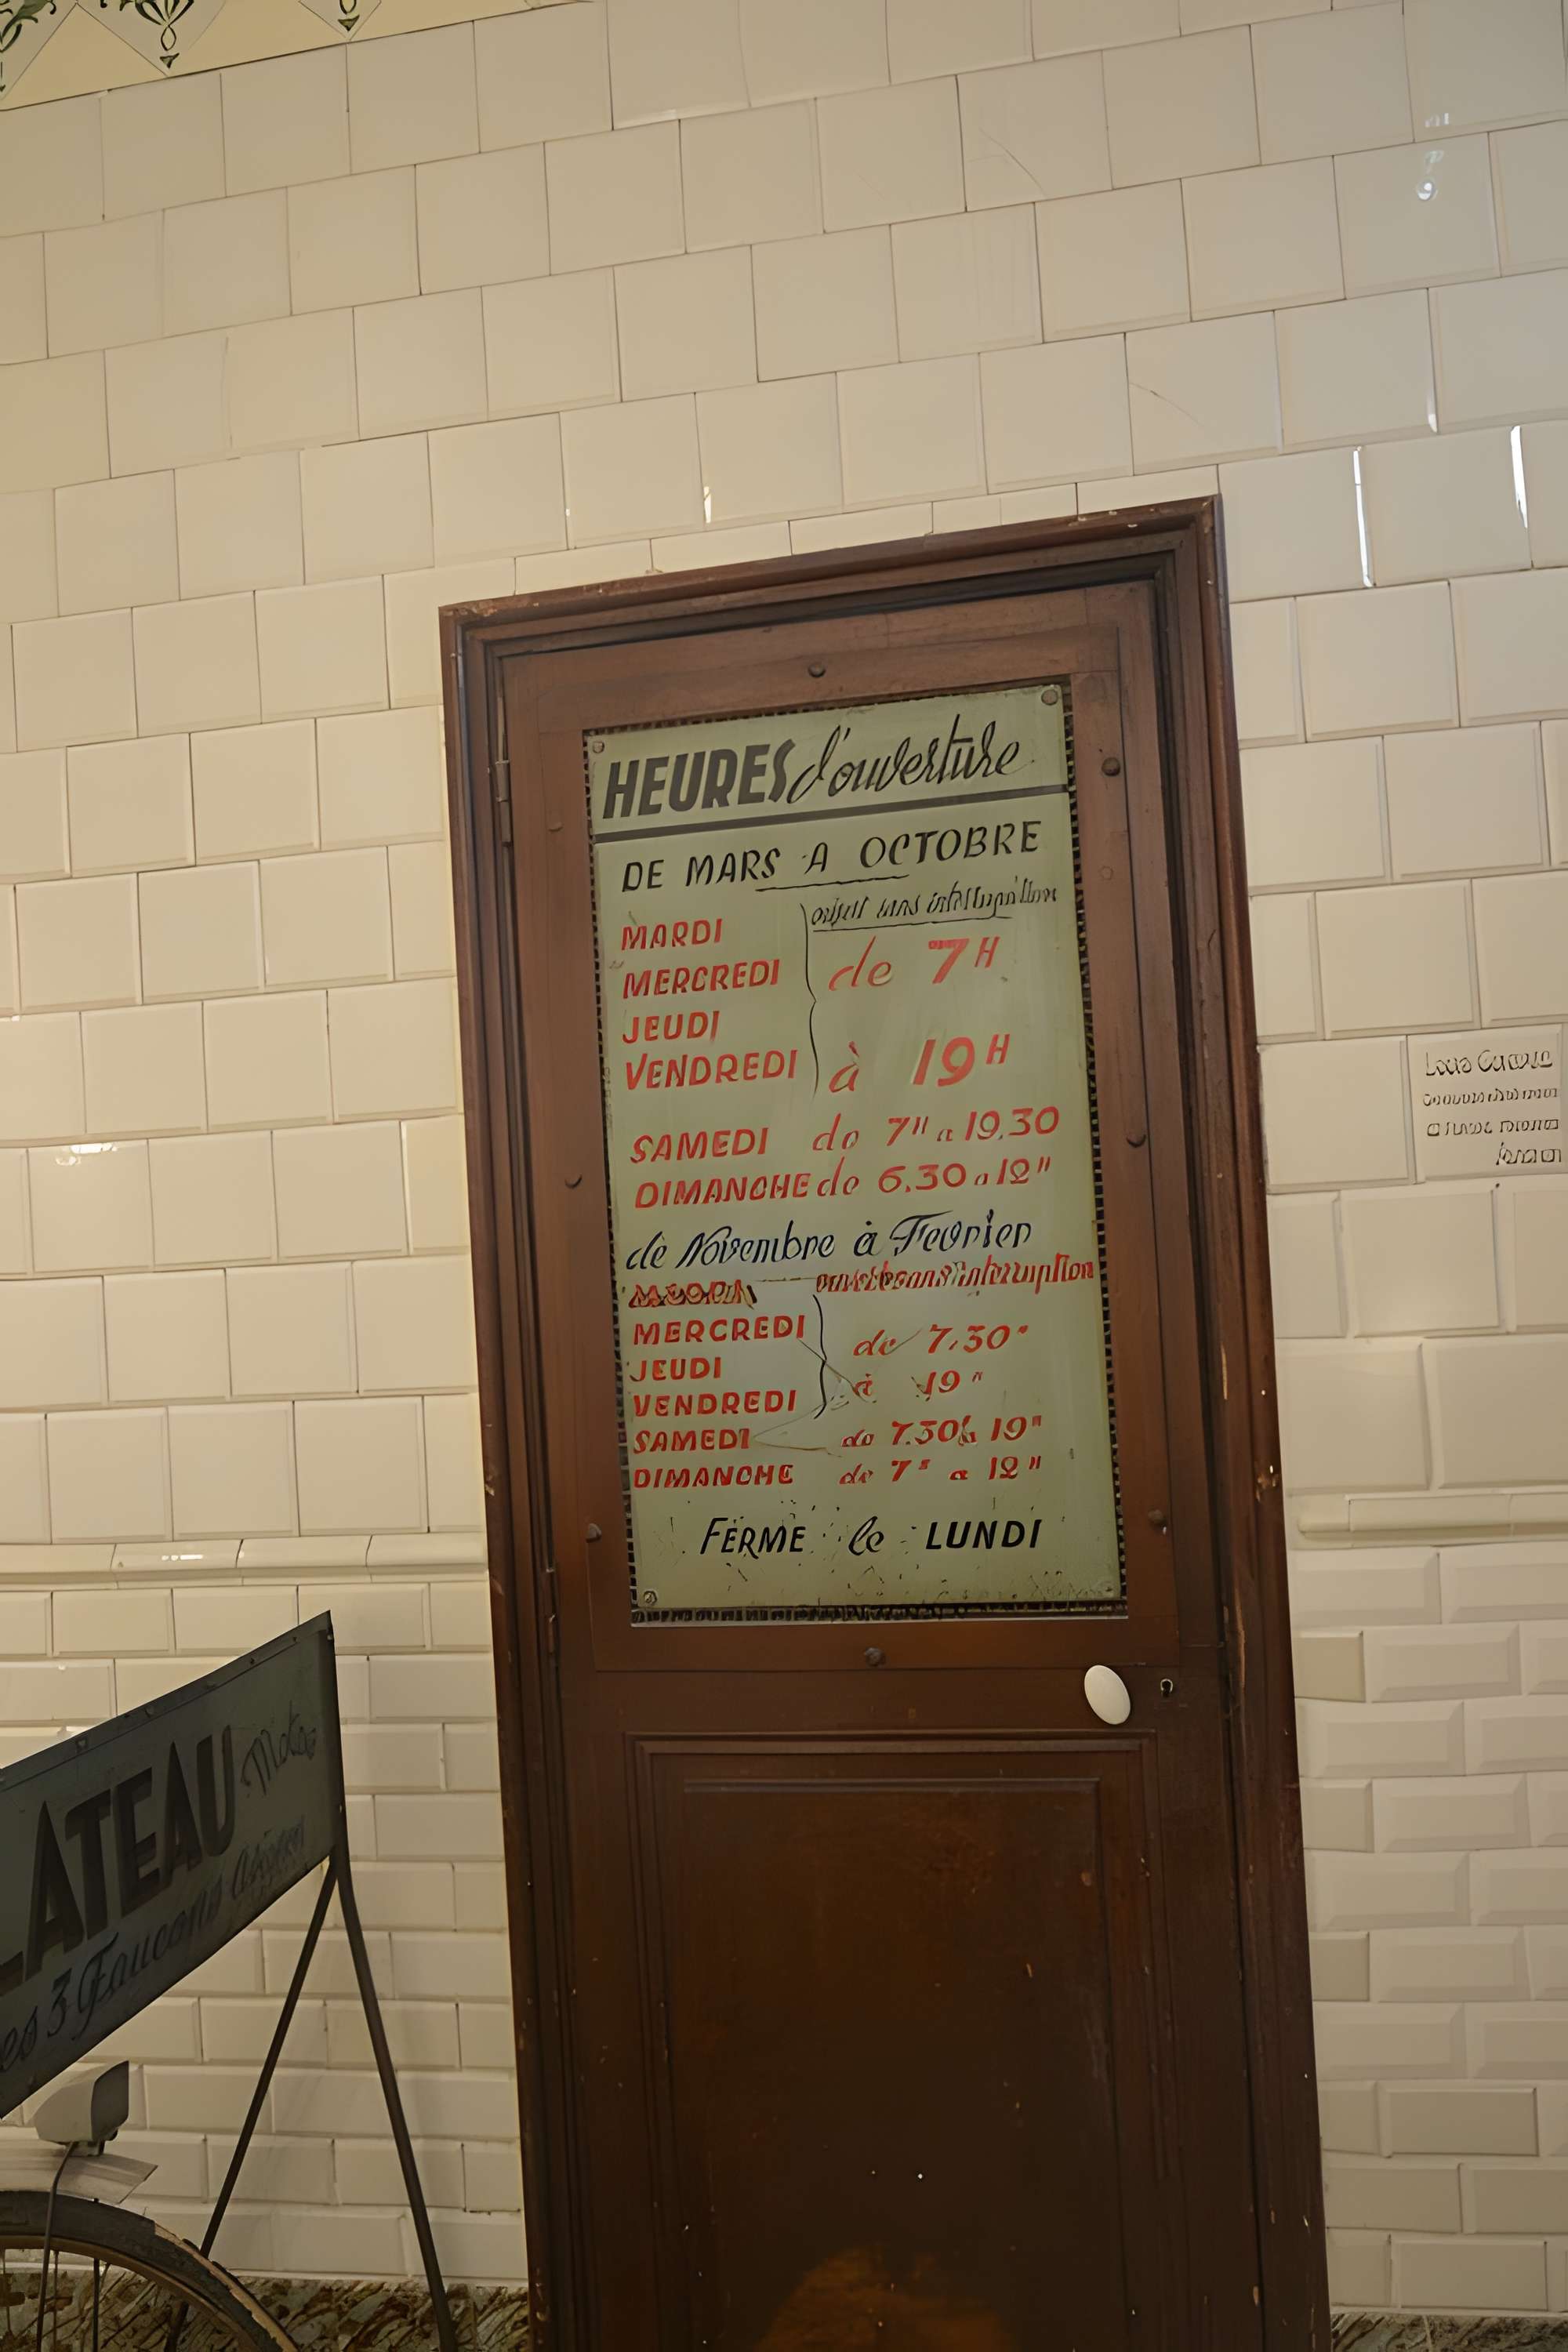 HEURES d'ouverture
DE MARS A OCTOBRE
sans
MARDI
MERCREDI
JEUDI
VENDREDI
de 7H
à 19H
SAMEDI de 7H a 19,30
DIMANCHE de 6.30 a 12H
de Novembre à Fevrier
interruption
MERCREDI
JEUDI
VENDREDI
de 7,30
à 19H
SAMEDI de 7.30 à 19H
DIMANCHE de 7H a 12H
FERME le LUNDI
LATEAU Motos
es 3 Faucons